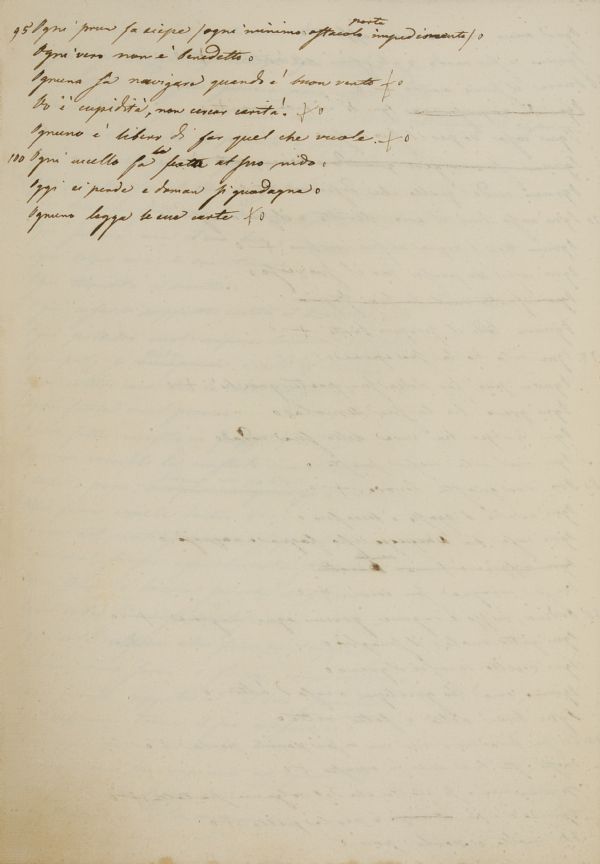 95 Ogni prun fa siepe (ogni minimo ostacolo porta impedimento) o
Ogni vero non è benedetto o
Ognuno sa navigare quando è buon vento + o
Ov'è cupidità, non cercar carità. + o
Ognuno è libero di far quel che vuole. + o
100 Ogni uccello fa festa al suo nido.
Oggi si perde e doman si guadagna o
Ognuno legga le sue carte + o